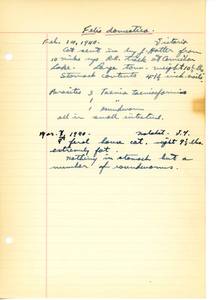 Felis domestica.
Feb. 14, 1940. Victoria
Cat sent in by J. Hatter from
10 miles up R.R. track at
Lake. Large tom. weight 10½ lbs
Stomach contents
Parasites 3 Taenia taeniaeformis
1 "
1 roundworm
all in small intestine.
Mar. 7, 1940. Malahat. V.I.
♀ feral house cat. weight 9½ lbs
extremely fat.
nothing in stomach but a
number of roundworms.